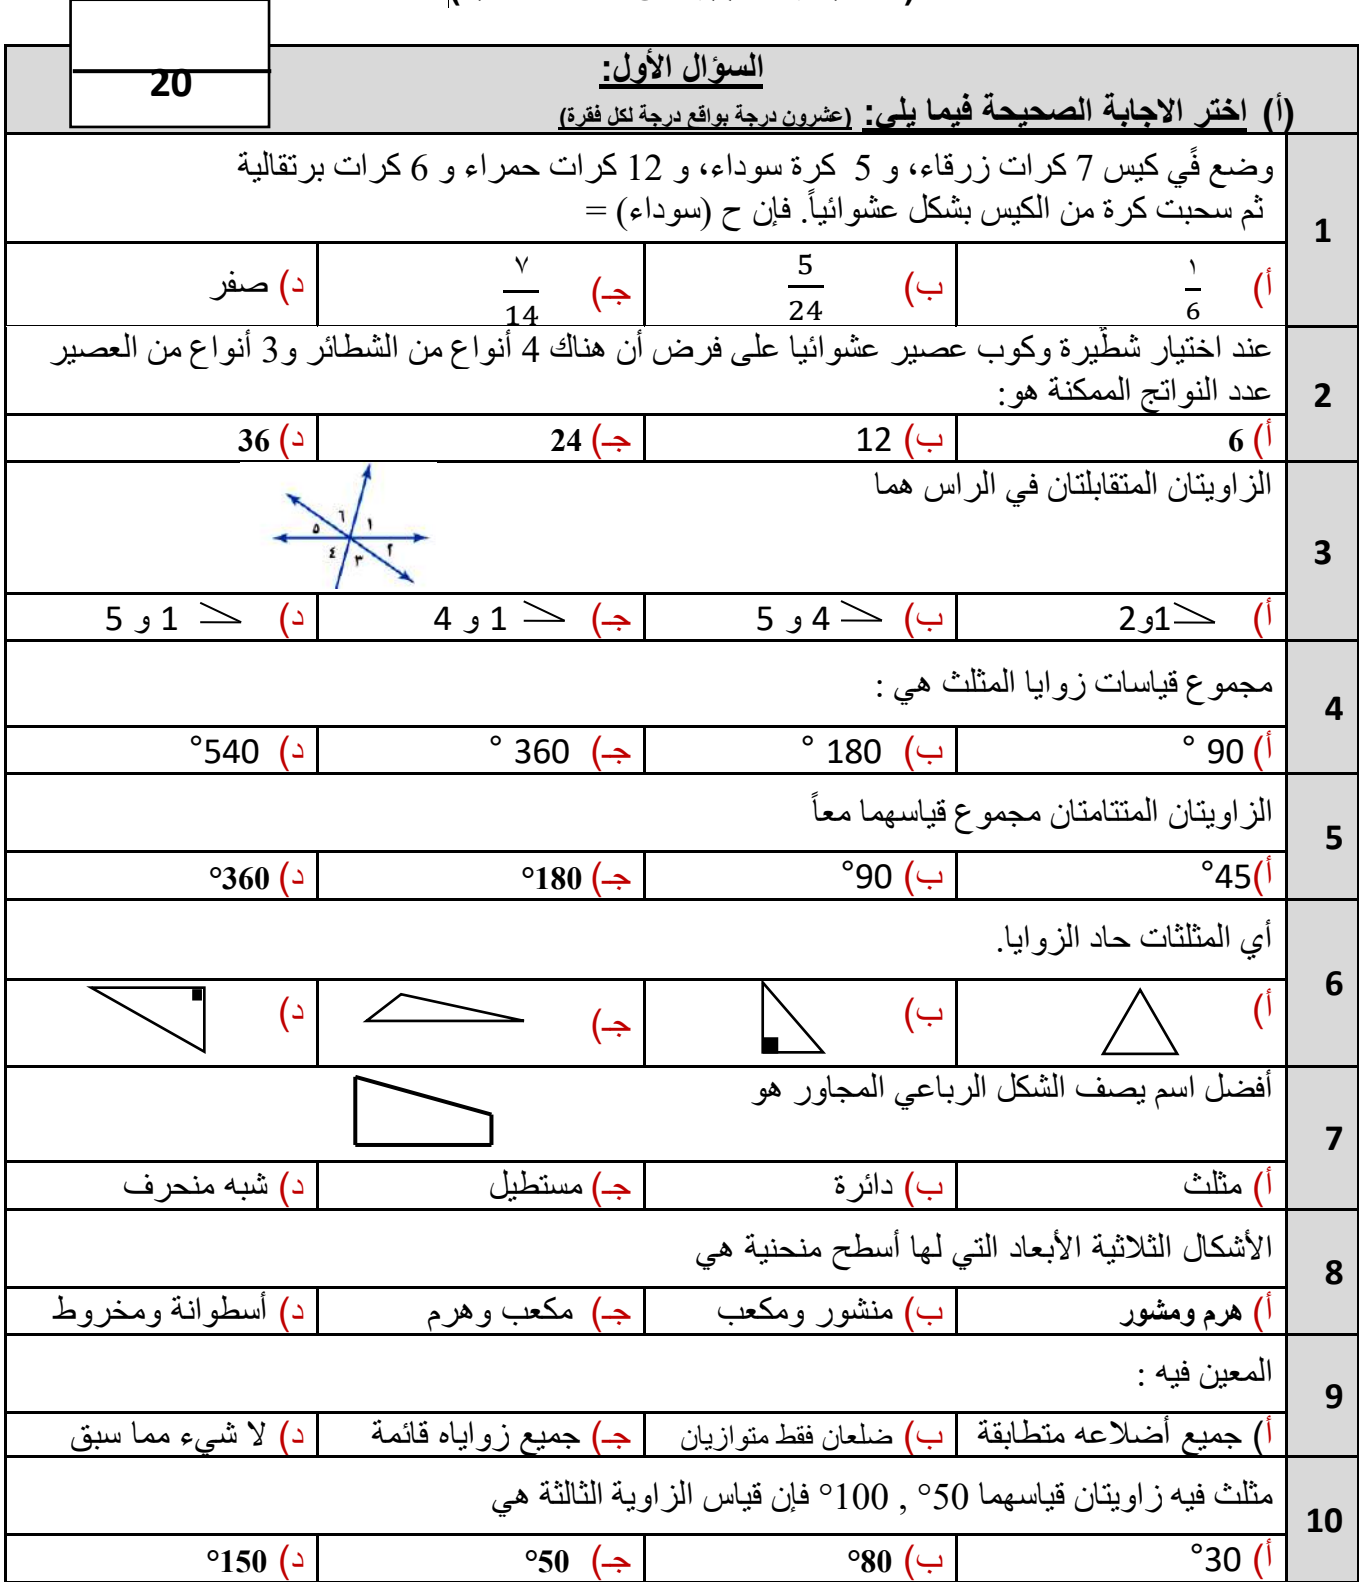 20
السؤال الأول:
(أ) اختر الاجابة الصحيحة فيما يلي: (عشرون درجة بواقع درجة لكل فقرة)
1
وضع في كيس 7 كرات زرقاء، و 5 كرة سوداء، و 12 كرات حمراء و 6 كرات برتقالية
ثم سحبت كرة من الكيس بشكل عشوائياً. فإن ح (سوداء) =
أ) ١/6 ب) 5/24 جـ) ٧/14 د) صفر
2
عند اختيار شطيرة وكوب عصير عشوائيا على فرض أن هناك 4 أنواع من الشطائر و3 أنواع من العصير
عدد النواتج الممكنة هو:
أ) 6 ب) 12 جـ) 24 د) 36
3
الزاويتان المتقابلتان في الراس هما
٦ ١
٥ ٢
٤ ٣
أ) 1و2 ب) 4 و 5 جـ) 1 و 4 د) 1 و 5
4
مجموع قياسات زوايا المثلث هي :
أ) 90 ° ب) 180 ° جـ) 360 ° د) 540°
5
الزاويتان المتتامتان مجموع قياسهما معاً
أ)45° ب) 90° جـ) 180° د) 360°
6
أي المثلثات حاد الزوايا.
أ) ب) جـ) د)
7
أفضل اسم يصف الشكل الرباعي المجاور هو
أ) مثلث ب) دائرة جـ) مستطيل د) شبه منحرف
8
الأشكال الثلاثية الأبعاد التي لها أسطح منحنية هي
أ) هرم ومشور ب) منشور ومكعب جـ) مكعب وهرم د) أسطوانة ومخروط
9
المعين فيه :
أ) جميع أضلاعه متطابقة ب) ضلعان فقط متوازيان جـ) جميع زواياه قائمة د) لا شيء مما سبق
10
مثلث فيه زاويتان قياسهما 50° , 100° فإن قياس الزاوية الثالثة هي
أ) 30° ب) 80° جـ) 50° د) 150°